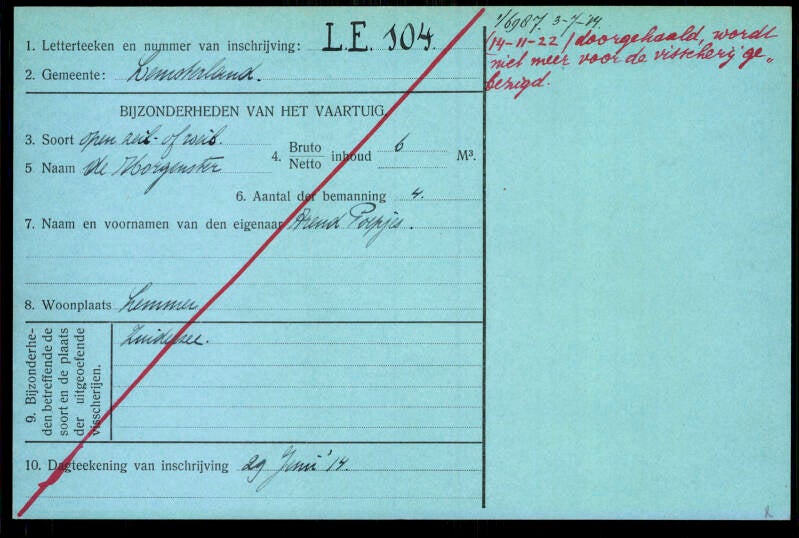 1. Letterteeken en nummer van inschrijving: L.E. 104.
2. Gemeente: Lemsterland.
BIJZONDERHEDEN VAN HET VAARTUIG.
3. Soort open zeil- of roeib.
4. Bruto Netto inhoud 6 M³.
5 Naam de Morgenster
6. Aantal der bemanning 4.
7. Naam en voornamen van den eigenaar Arend Poepjes.
8. Woonplaats Lemmer
9. Bijzonderhe-
den betreffende de
soort en de plaats
der uitgeoefende
visscherijen.
Zuiderzee.
10. Dagteekening van inschrijving 29 Juni '14.
1/6987. 3-7-'14.
(14-11-22) doorgehaald, wordt
niet meer voor de visscherij ge-
bezigd.